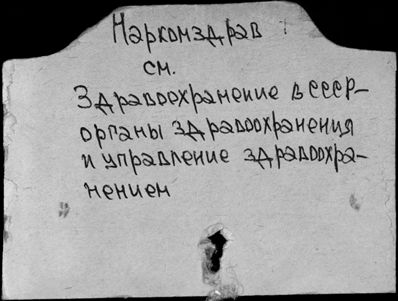 Наркомздрав
см.
Здравоохранение в СССР-
органы здравоохранения
и управление здравоохра-
нением